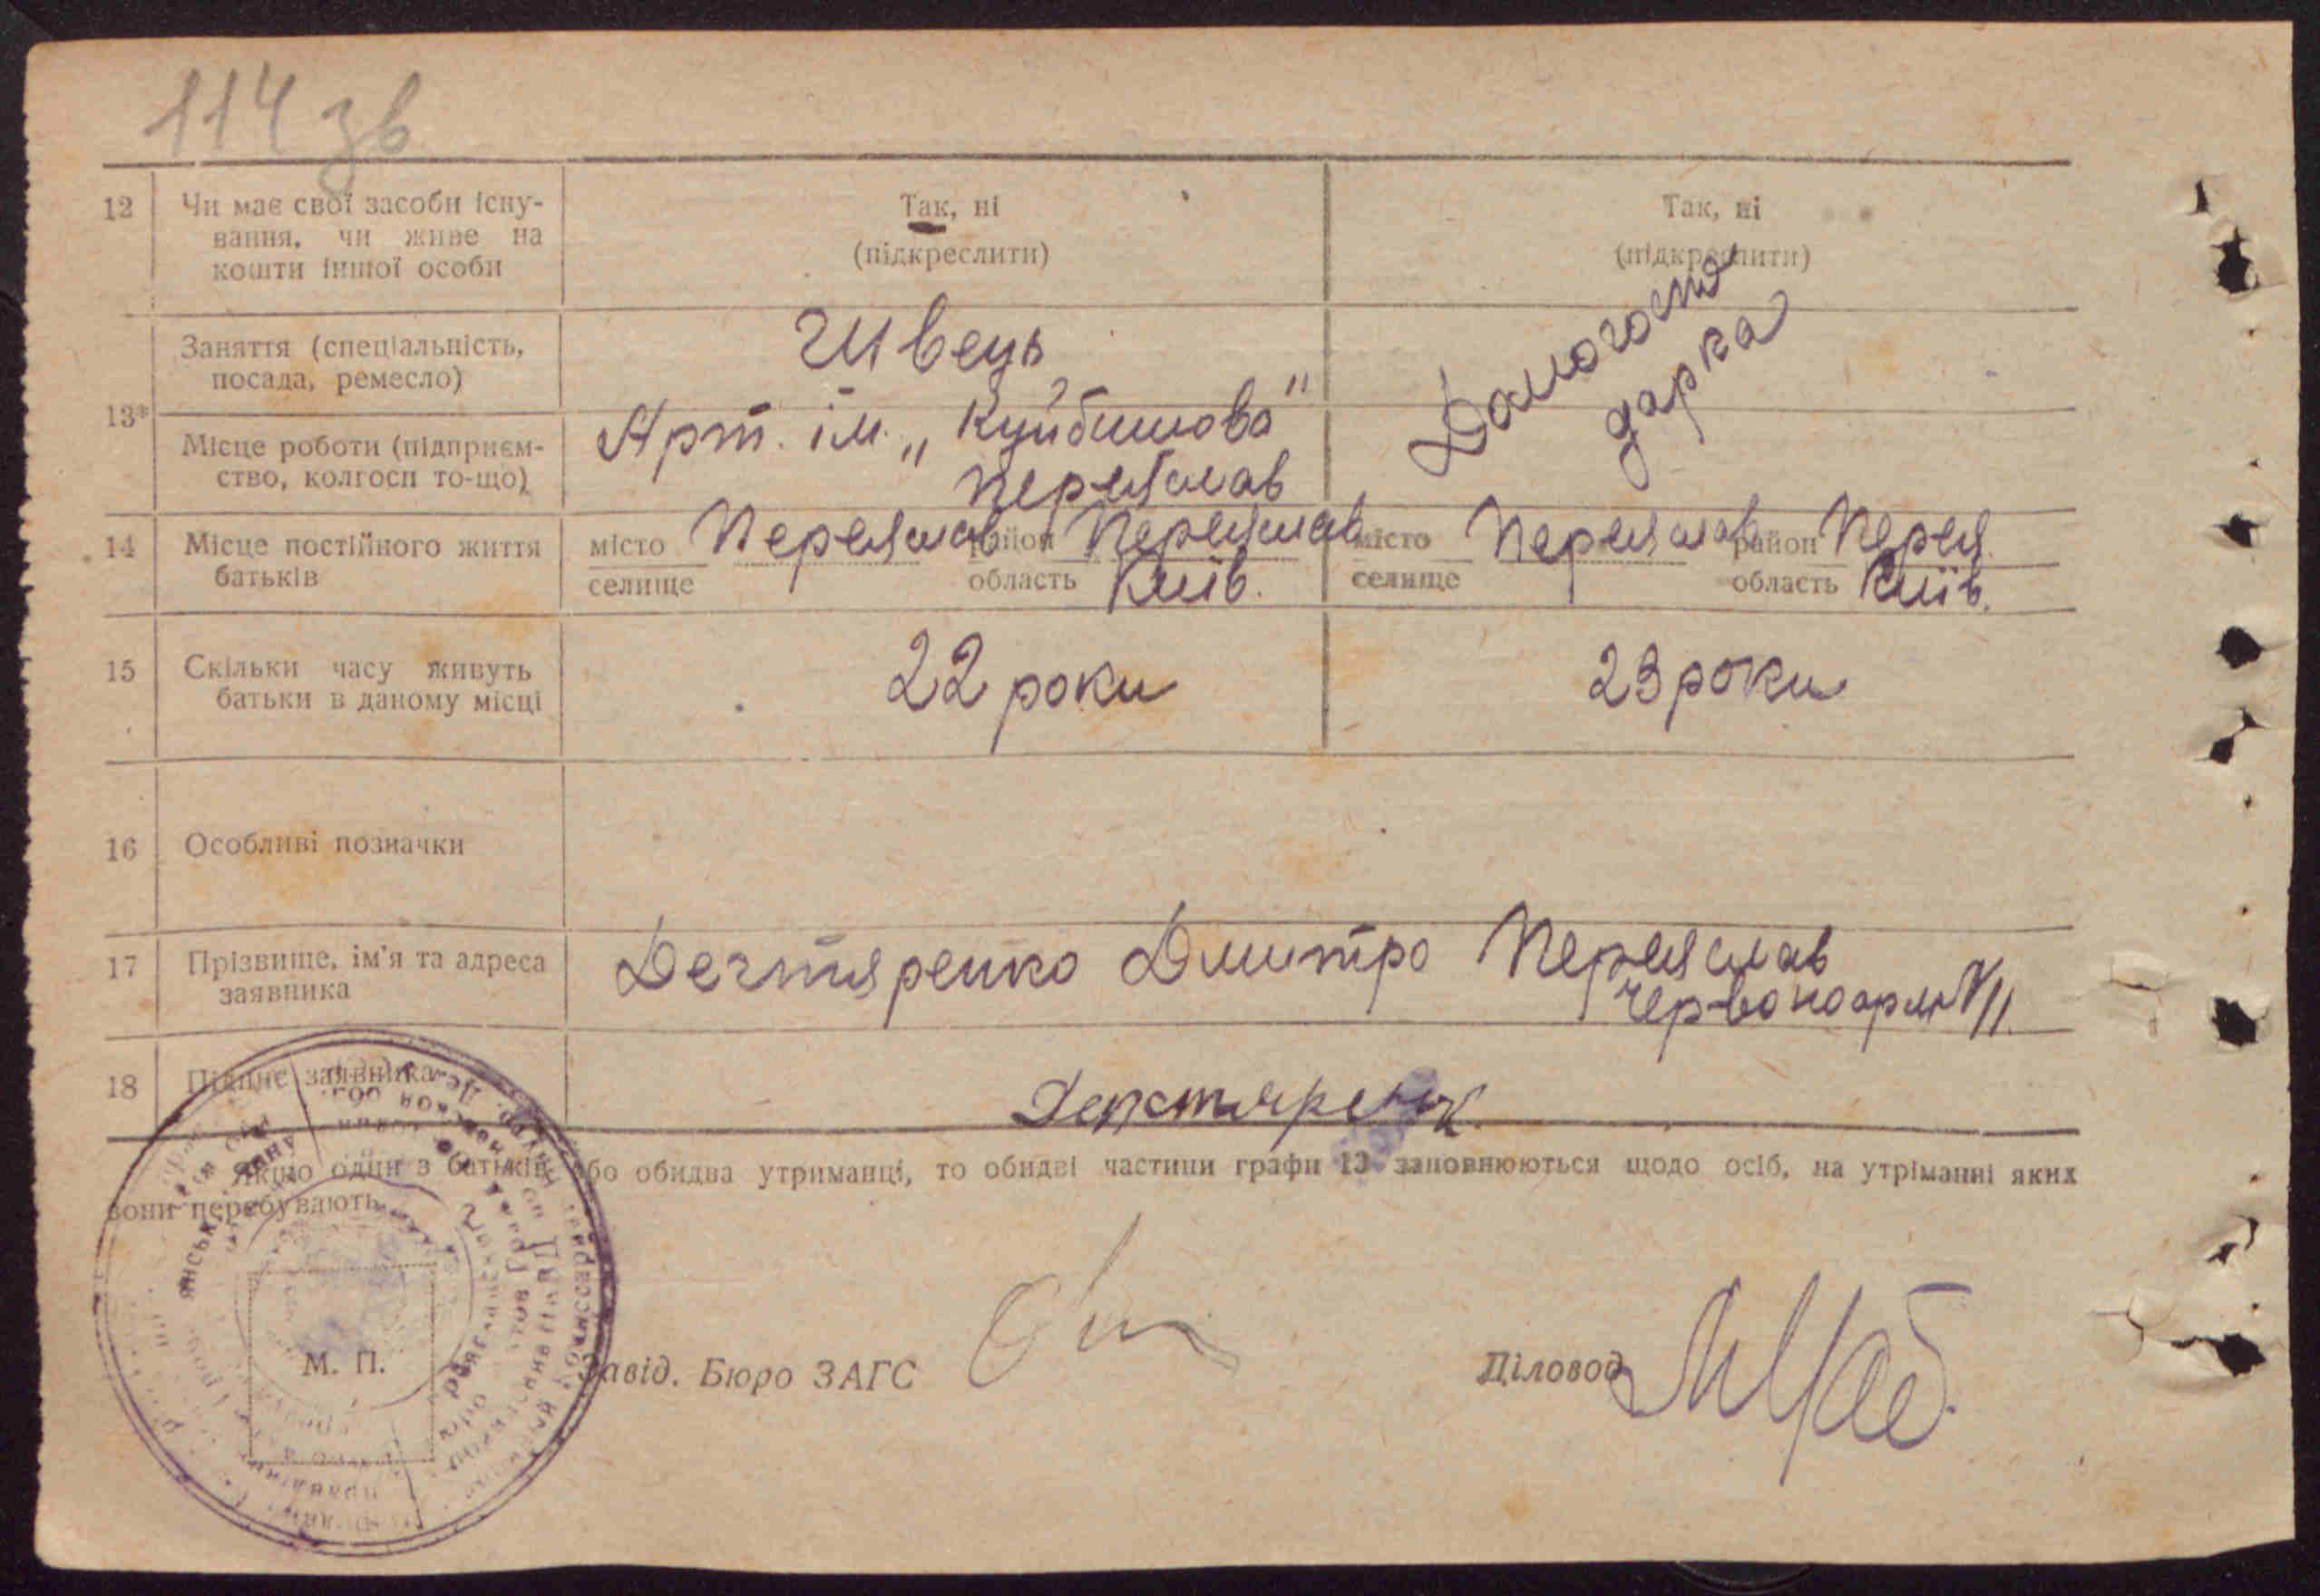 114 зв
12 Чи має свої засоби існу-
вання, чи живе на
кошти іншої особи
Так, ні
(підкреслити)
Так, ні
(підкреслити)
13*
Заняття (спеціальність,
посада, ремесло)
Швець
Домогоспо
дарка
Місце роботи (підприєм-
ство, колгосп то-що)
Арт. ім. „Куйбишова"
Переяслав
14 Місце постійного життя
батьків
місто Переяслав район Переяслав
селище область Київ.
місто Переяслав район Перея.
селище область Київ.
15 Скільки часу живуть
батьки в даному місці
22 роки
23 роки
16 Особливі позначки
17 Прізвище, ім'я та адреса
заявника
Дегтяренко Дмитро Переяслав
Червоноарм
18 Підпис заявника
Якщо один з батьків або обидва утриманці, то обидві частини графи 13 заповнюються щодо осіб, на утріманні яких
вони перебувають.
М. П.
Завід. Бюро ЗАГС
Діловод